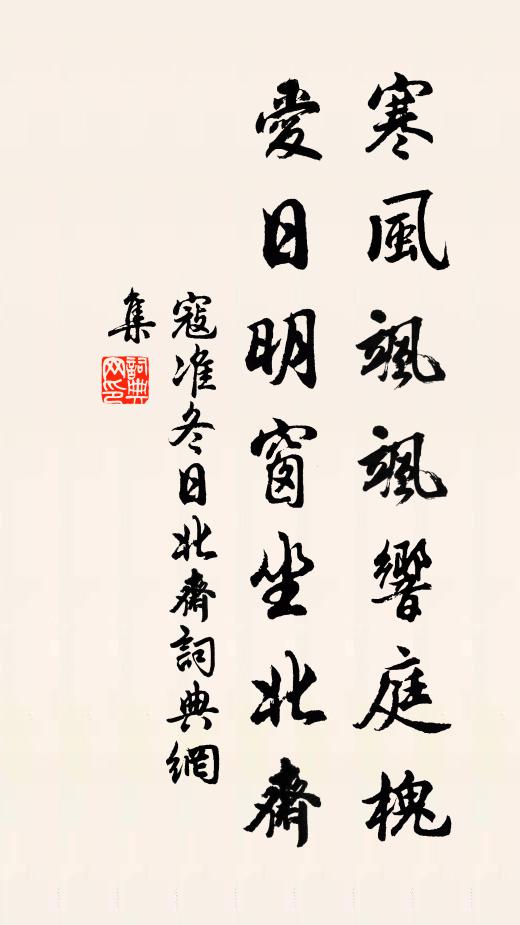 寒風颯颯響庭槐
愛日明窗坐北齋
寇准冬日北齋詞典網
集
詞典網印